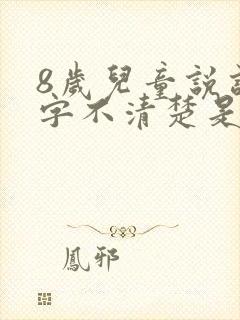 8歲兒童說
字不清楚是
鳳邪